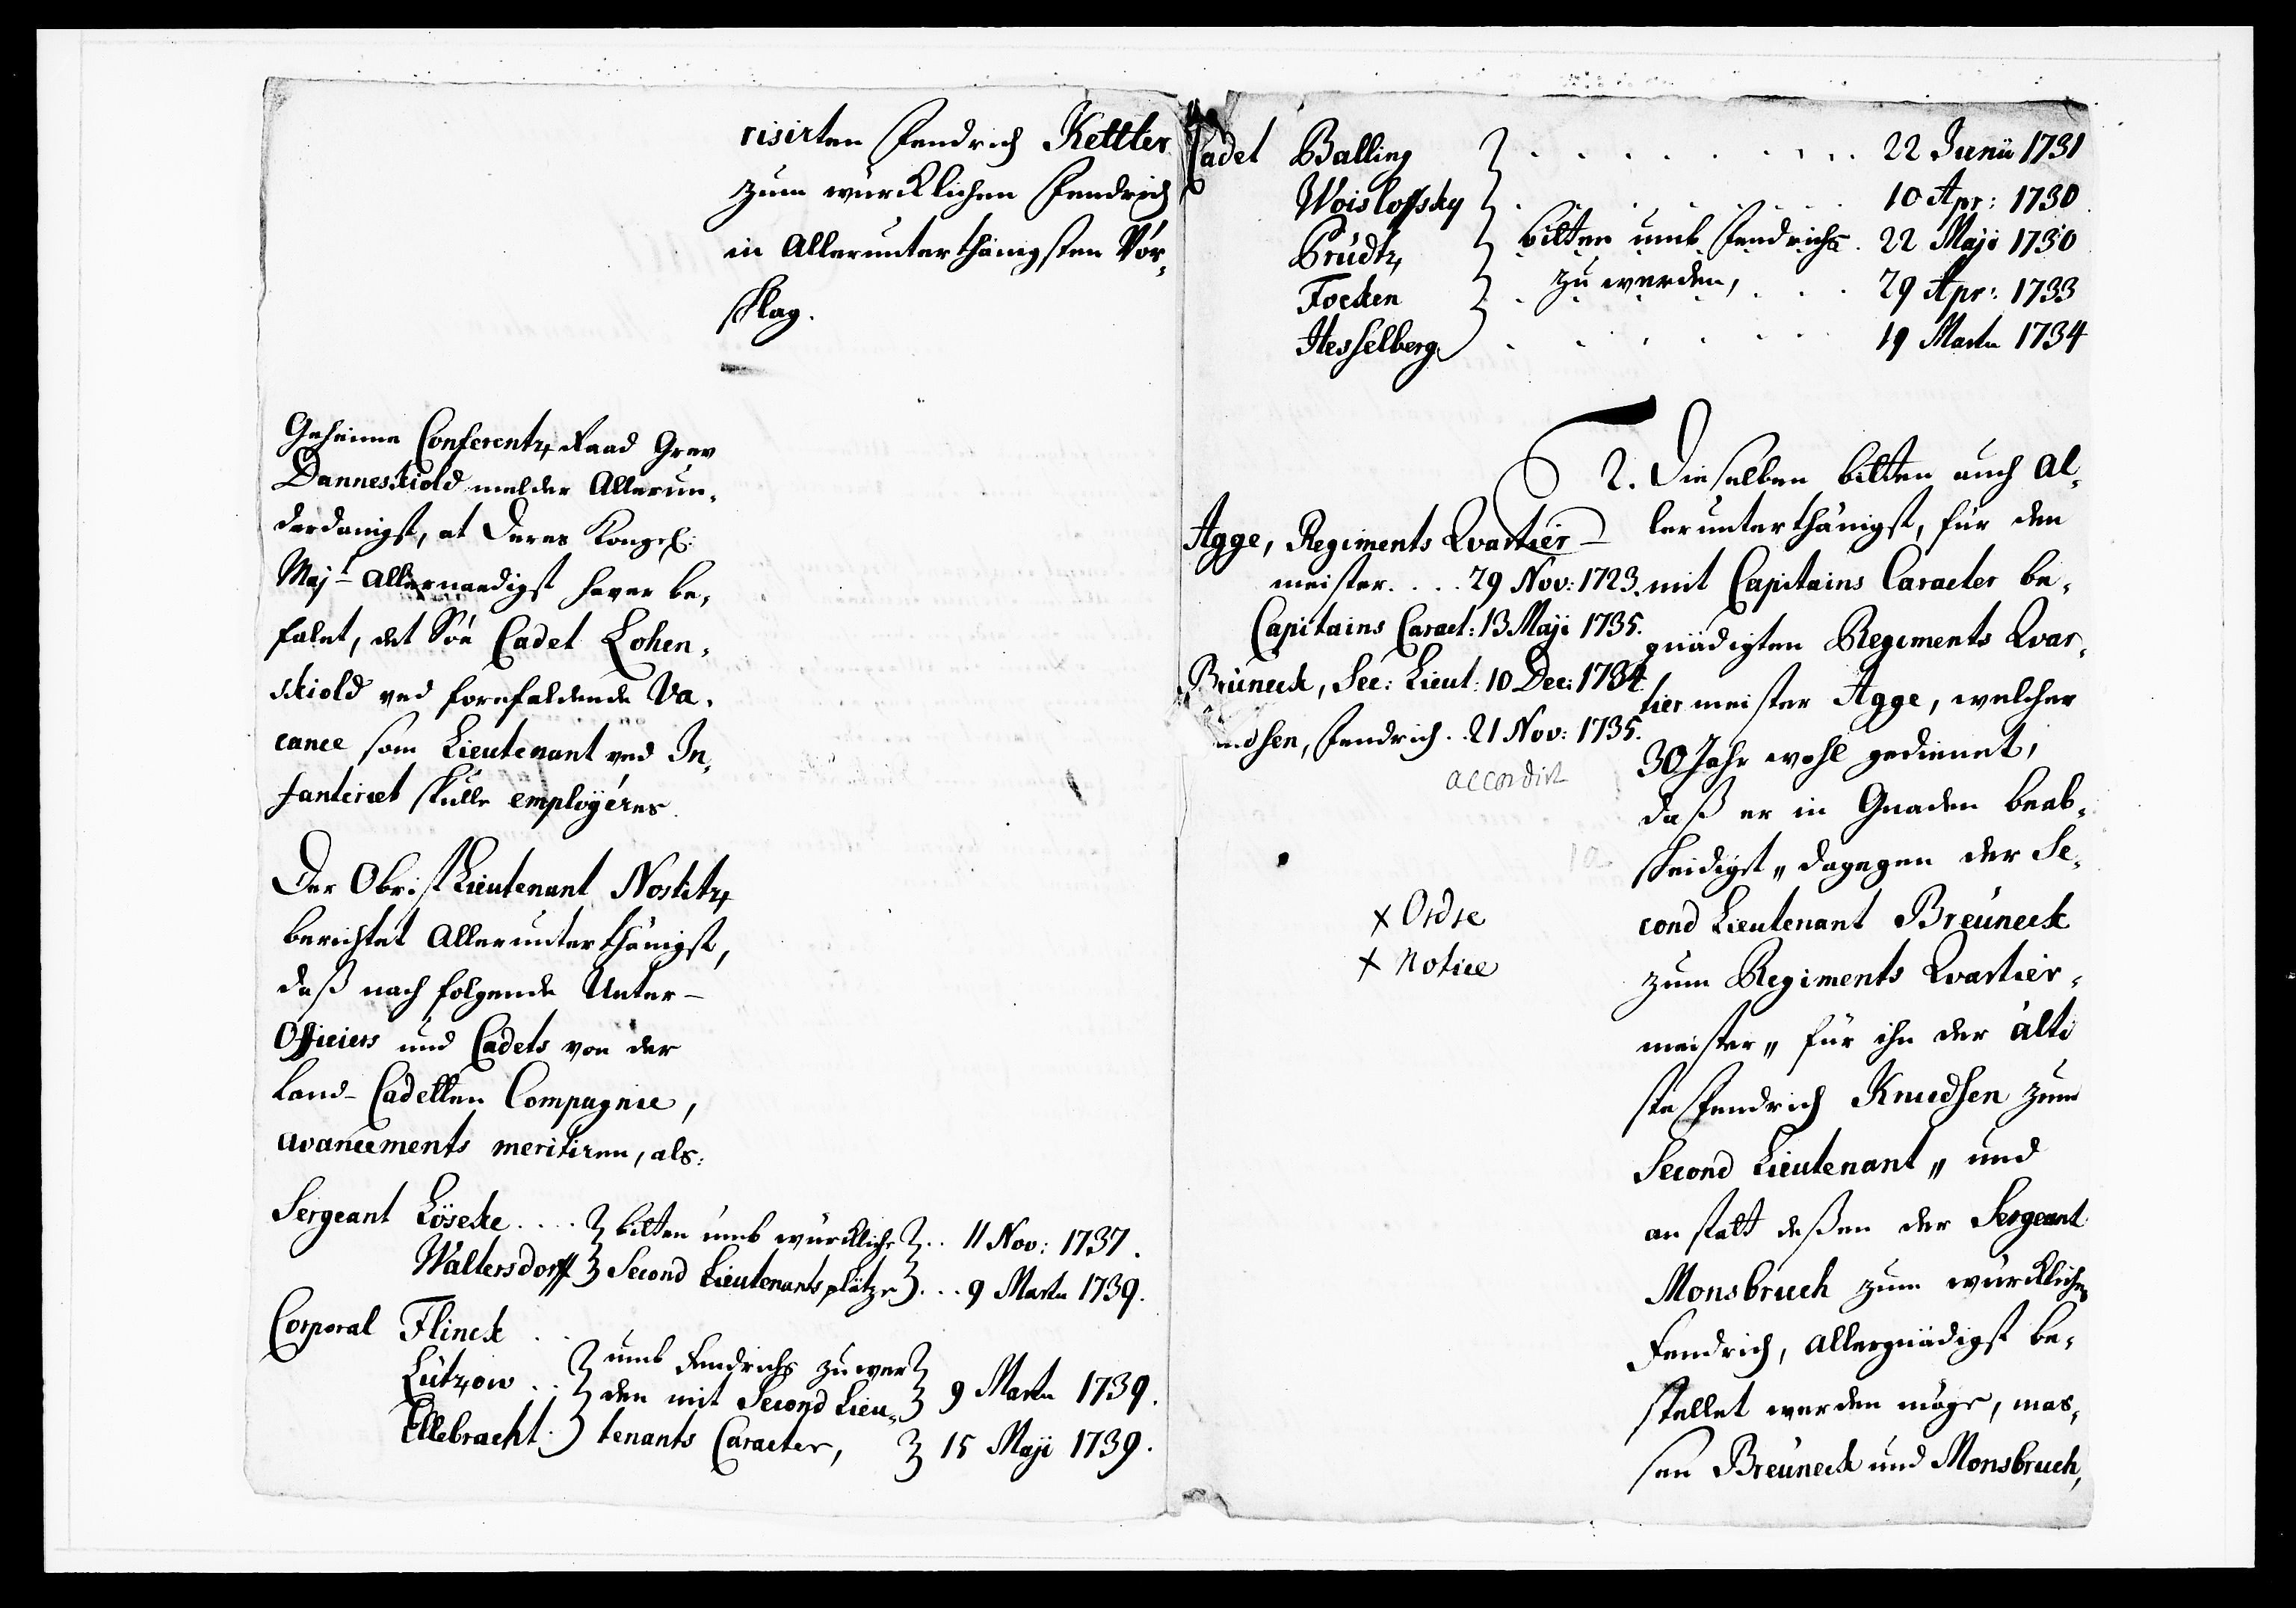 risirten Fendrich Kettler
zum würcklichen Fendrich
in Allerunterthänigsten Vor-
schlag.
Geheime Conferentz Raad Grev
Danneskiold melder Allerun-
derdanigst, at Deres Kongel:
Majt Allernaadigst haver be-
falet, det Söe Cadet Lohen-
skiold ved forefaldende Va-
cance som Lieutenant ved In-
fanteriet skulle employéres.
Der Obrist Lieutenant Nostitz
berichtet Allerunterthänigst,
daß nachfolgende Unter-
Officiers und Cadets von der
Land-Cadetten Compagnie,
avancements meritiren, als:
Sergeant Löseke.... bitten umb würckliche .. 11 Nov: 1737.
Waltersdorff Second Lieutenants plätze ... 9 Martii 1739.
Corporal Flinck ..
Lützow .. umb Fendrichs zu wer-
den mit Second Lieu- 9 Martii 1739.
Ellebracht. tenants Caracter, 15 Maji 1739.
Cadet Balling . . . . . . . . . 22 Junii 1731
Woisloffsky . . . . . . 10 Apr: 1730
Prüdtz bitten umb Fendrichs . 22 Maji 1730
Focken . zu werden, . . . 29 Apr: 1733
Hesselberg . . . . . . 19 Martii 1734
Agge, Regiments Qvartier-
meister. . . . 29 Nov: 1723.
Capitains Caract: 13 Maji 1735.
Brüneck, Sec: Lieut: 10 Dec: 1734.
udsen, Fendrich. . 21 Nov: 1735.
accordirt
x Ordre
x Notice
2. Dieselben bitten auch Al-
lerunterthänigst, für den
mit Capitains Caracter be-
gnädigten Regiments Qvar-
tiermeister Agge, welcher
30 Jahr wohl gedienet,
daß er in Gnaden beab-
scheidigt" dagegen der Se-
cond Lieutenant Breüneck
zum Regiments Qvartier-
meister" für ihn der älte
ste Fendrich Knudsen zum
Second Lieutenant" und
an statt deßen der Sergeant
Monsbruch zum würcklichen
Fendrich, Allergnädigst be-
stellet werden möge, mas-
sen Breüneck und Monsbruch,